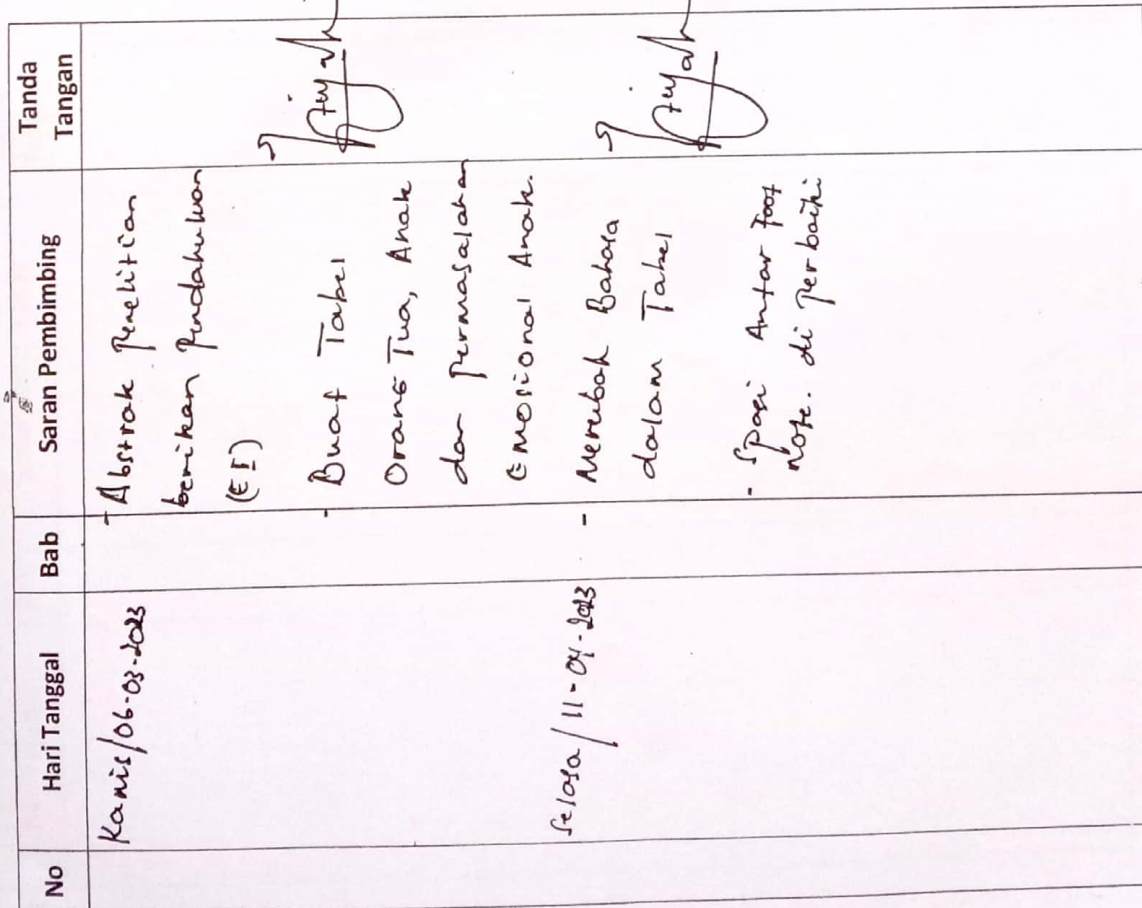 No Hari Tanggal Bab Saran Pembimbing Tanda Tangan
Kamis/06-03-2023
- Abstrak Penelitian
berikan Pendahuluan
(EI)
- Buat Tabel
Orang Tua, Anak
dan Permasalahan
Emosional Anak.
Selasa/11-04-2023
- Merubah Bahasa
dalam Tabel
- Spasi Antar Foot
Note. di Perbaiki